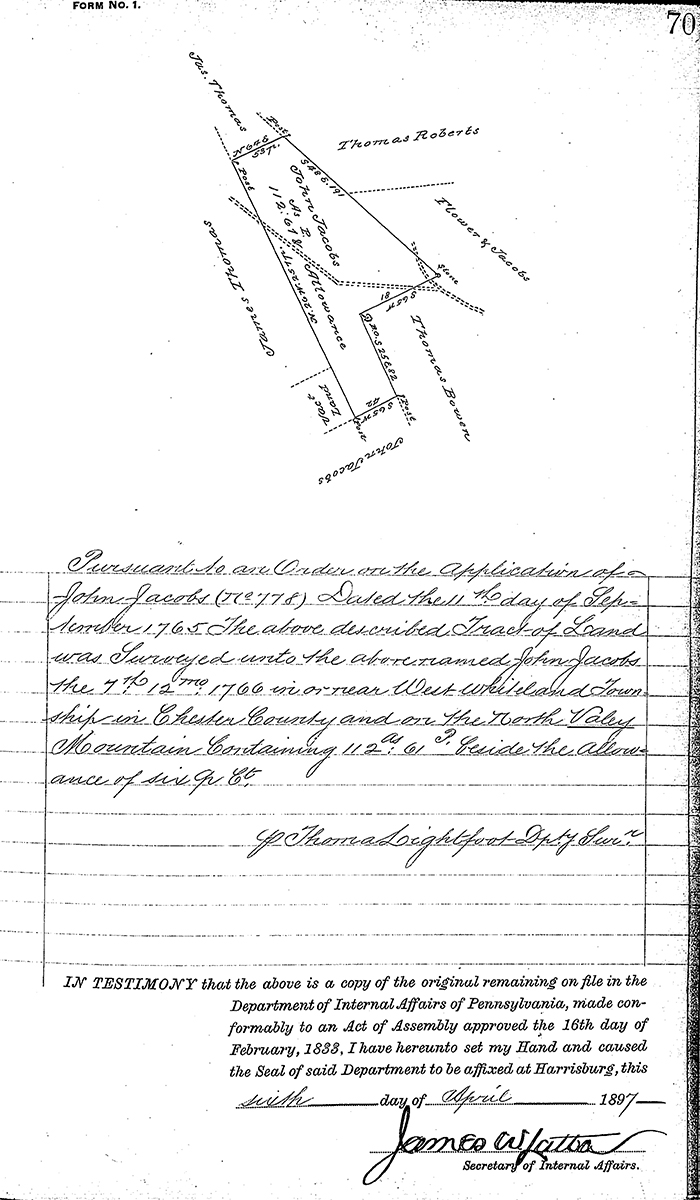 FORM NO. 1.
70
Jas. Thomas
Post
Thomas Roberts
N 64 E
53 p.
Post
S 48 E. 191
John Jacobs
As P.
112:61 &
Allowance
Flower & Jacobs
James Thomas
Stone
81
S 65 W
Thomas Bowen
N. 20 W. 257 p.
B.O. S 25 E 82
Vact
Land
42
S 65 W
Post
Post
John Jacobs
Pursuant to an Order on the Application of
John Jacobs (No 778) Dated the 11th day of Sep-
tember 1765 The above described Tract of Land
was Surveyed unto the above named John Jacobs
the 7th 12mo 1766 in or near West Whiteland Town-
ship in Chester County and on the North Valey
Mountain Containing 112 as. 61 P. beside the allow-
ance of six P Ct.
P Thomas Lightfoot Dpty Surr.
IN TESTIMONY that the above is a copy of the original remaining on file in the
Department of Internal Affairs of Pennsylvania, made con-
formably to an Act of Assembly approved the 16th day of
February, 1833, I have hereunto set my Hand and caused
the Seal of said Department to be affixed at Harrisburg, this
sixth day of April 1897
James W Latta
Secretary of Internal Affairs.